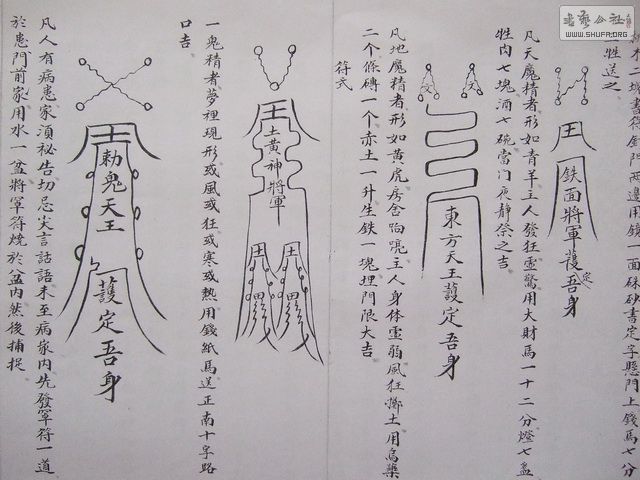 符釘門兩邊用鏡一面硃砂書定字懸門上錢馬七分
牲送之
王
鉄面將軍護定吾身
凡天魔精者形如青羊主人發狂虛驚用大財馬一十二分燈七盞
牲肉七塊酒七碗當门夜靜祭之吉
文
文
東方天王護定吾身
凡地魔精者形如黃虎房舍跑跳主人身体虛弱風狂擲土用烏藥
二个條磚一个赤土一升生鉄一塊埋門限大吉
符式
王
土黃神將軍
一鬼精者夢裡現形或風或狂或寒或熱用錢紙馬送正南十字路
口吉
勅鬼天王
護定吾身
凡人有病患家須祕告切忌尖言話語未至病家內先發軍符一道
於患門前家用水一盆將軍符燒於盆內然後捕捉
WWW.SHUFA.ORG